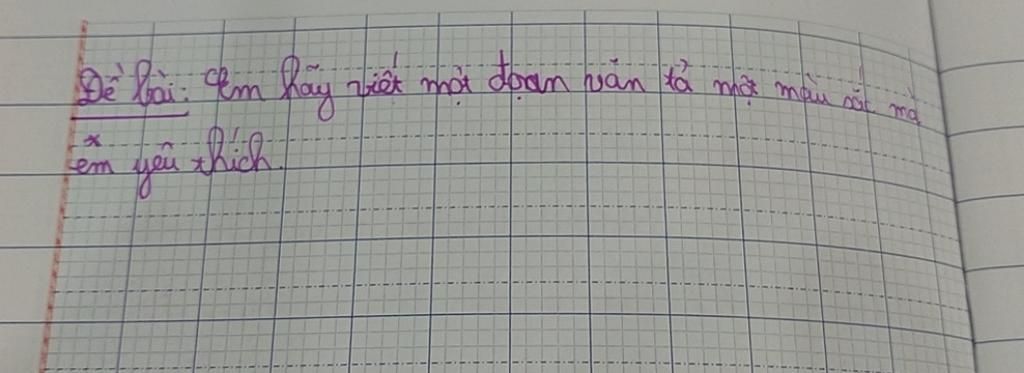 Đề bài: Em hãy viết một đoạn văn tả một màu sắc mà
em yêu thích.